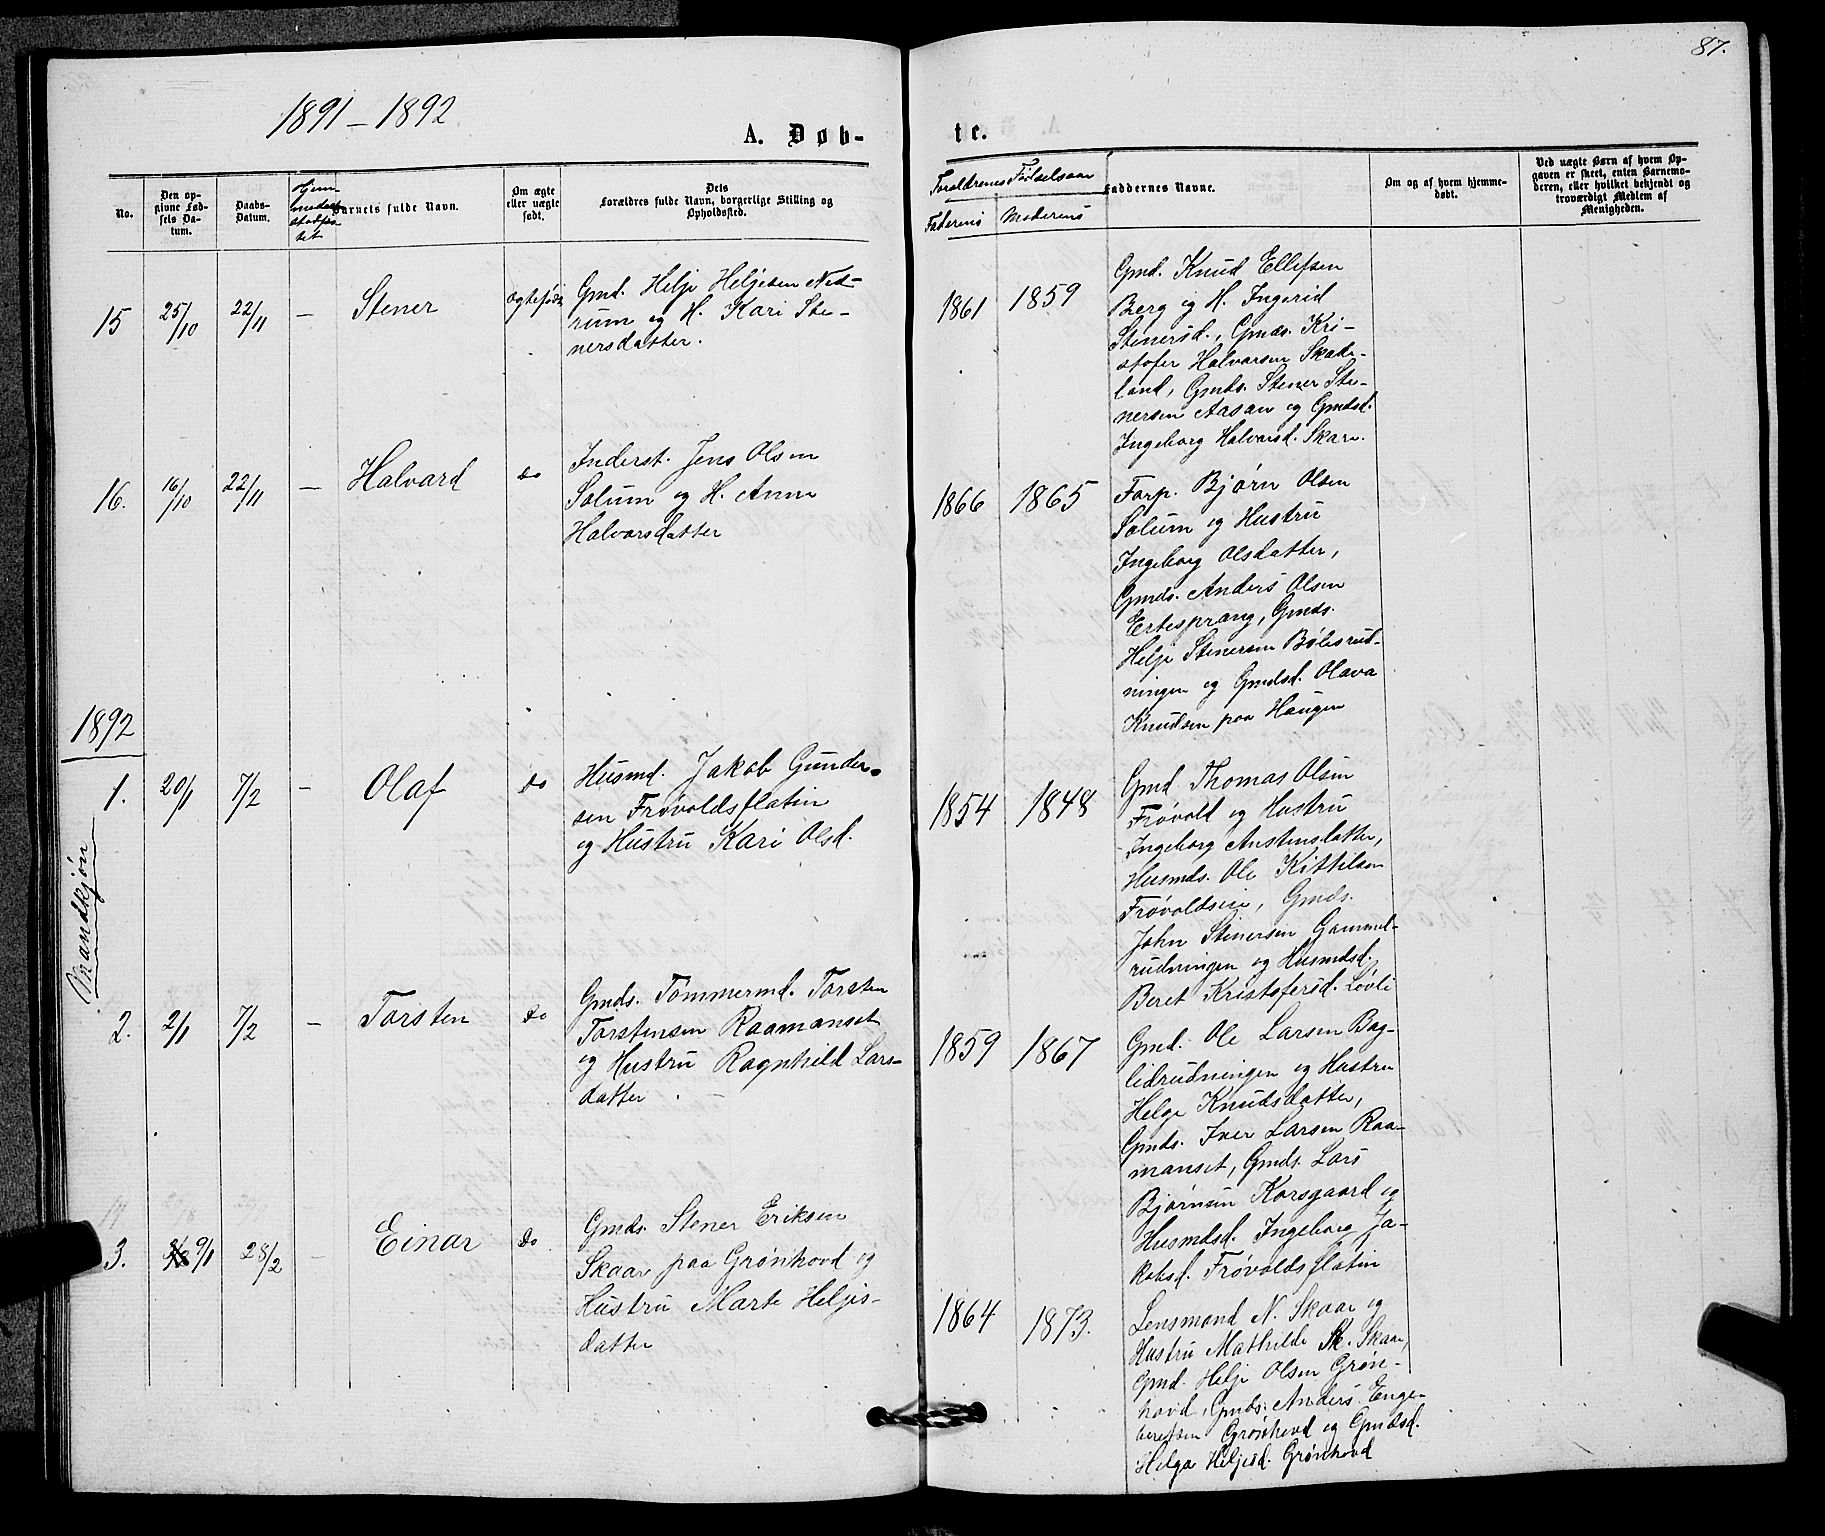 87.
1891-1892
A. Døb-
te.
No.
Den op-
givne Fød-
sels Da-
tum.
Daabs-
Datum.
Barnets fulde Navn.
Om ægte
eller uægte
født.
Dets
Forældres fulde Navn, borgerlige Stilling og
Opholdssted.
Forældrenes Fødselsaar
Faderens
Moderens
Faddernes Navne.
Om og af hvem hjemme-
døbt.
Ved uægte Børn af hvem Op-
gaven er skeet, enten Barnemo-
deren, eller hvilket bekjendt og
troværdigt Medlem af
Menigheden.
15
25/10
22/11
—
Stener
Ægtefødt
Gmd. Helje Heljesen Ned-
rum og H. Kari Ste-
nersdatter.
1861
1859
Gmd. Knud Ellefsen
Berg og H. Ingerid
Stenersd., Gmds. Kri-
stofer Halvorsen Skade-
land, Gmds. Stener Ste-
nersen Aasan og Gmdsd.
Ingeborg Halvorsd. Skare.
16.
16/10
22/11
—
Halvard
do
Inderst. Jens Olsen
Solum og H. Anne
Halvorsdatter
1866
1865
Forp. Bjørn Olsen
Solum og Hustru
Ingeborg Olsdatter,
Gmds. Anders Olsen
Ertesprang, Gmds.
Helje Stenersen Bølesrud-
ningen og Gmdsd. Olava
Knudsen paa Haugen
1892
Mandkjøn
1.
20/1
7/2
-
Olaf
do
Husmd. Jakob Gunder-
sen Frøvoldsflaten
og Hustru Kari Olsd.
1854
1848
Gmd. Thomas Olsen
Frøvold og Hustru
Ingeborg Austensdatter,
Husmds. Ole Kittilsen
Frøvoldseie, Gmds.
John Stenersen Gammel-
rudningen og Husmdsd.
Beret Kristofersd. Løvli
2.
2/1
7/2
-
Torsten
do
Gmds. Tømmermd. Torsten
Torstensen Raamanset
og Hustru Ragnhild Lars-
datter.
1859
1867
Gmd. Ole Larsen Bag-
lidrudningen og Hustru
Helge Knudsdatter,
Gmds. Iver Larsen Raa-
manset, Gmds. Lars
Bjørnsen Korsgaard og
Husmdsd. Ingeborg Ja-
kobsd. Frøvoldsflaten
3.
9/1
28/2
-
Einar
do
Gmds. Stener Eriksen
Skaar paa Grønhovd og
Hustru Marte Heljes-
datter
1864
1873.
Lensmand N. Skaar og
Hustru Mathilde Sk. Skaar,
Gmd. Helje Olsen Grøn-
hovd, Gmds. Anders Enge-
bretsen Grønhovd og Gmdsd.
Helga Heljesd. Grønhovd